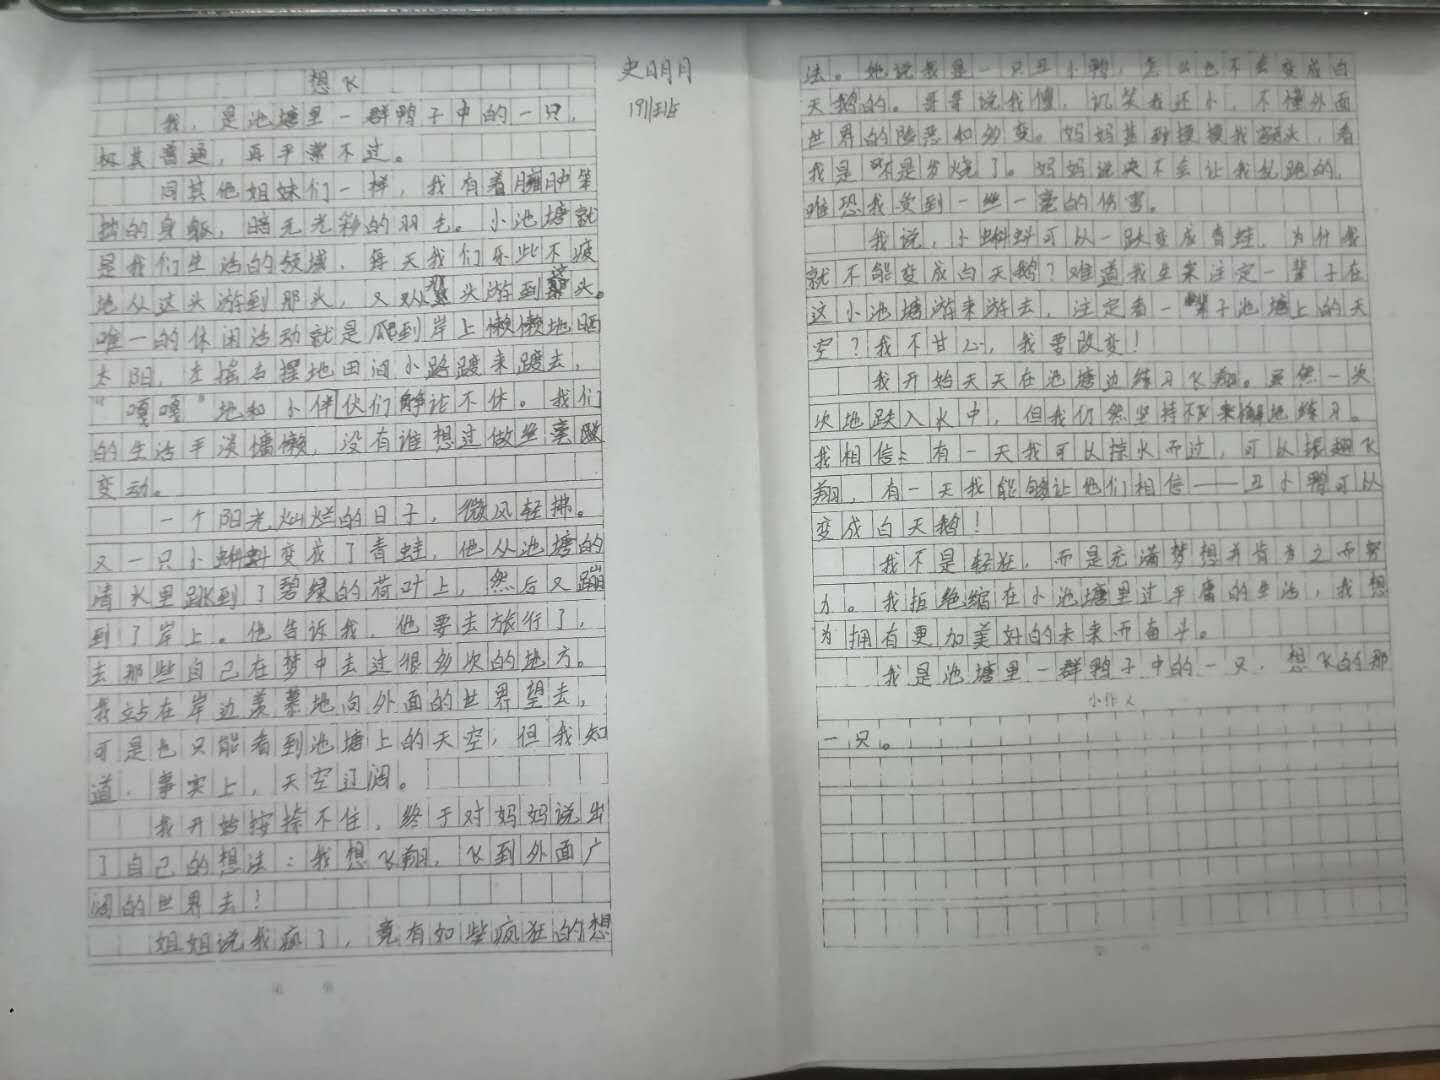 想飞
史明月
191班
我，是池塘里一群鸭子中的一只，
极其普通，再平常不过。
同其他姐妹们一样，我有着臃肿笨
拙的身躯，暗无光彩的羽毛。小池塘就
是我们生活的领域，每天我们乐此不疲
地从这头游到那头，又从那头游到这头。
唯一的休闲活动就是爬到岸上懒懒地晒
太阳，左摇右摆地田间小路踱来踱去，
“嘎嘎”地和小伴伙们争论不休。我们
的生活平淡慵懒，没有谁想过做丝毫
变动。
一个阳光灿烂的日子，微风轻拂。
又一只小蝌蚪变成了青蛙，他从池塘的
清水里跳到了碧绿的荷叶上，然后又蹦
到了岸上。他告诉我，他要去旅行了，
去那些自己在梦中去过很多次的地方。
我站在岸边羡慕地向外面的世界望去，
可是也只能看到池塘上的天空，但我知
道，事实上，天空辽阔。
我开始按捺不住，终于对妈妈说出
了自己的想法：我想飞翔，飞到外面广
阔的世界去！
姐姐说我疯了，竟有如些疯狂的想
法。她说我是一只丑小鸭，怎么也不会变成白
天鹅的。哥哥说我傻，讥笑我还小，不懂外面
世界的险恶和多变。妈妈甚至摸摸我额头，看
我是不是发烧了。妈妈说决不会让我乱跑的，
唯恐我受到一丝一毫的伤害。
我说，小蝌蚪可以一跃变成青蛙，为什我
就不能变成白天鹅？难道我生来注定一辈子在
这小池塘游来游去，注定看一辈子池塘上的天
空？我不甘心，我要改变！
我开始天天在池塘边练习飞翔。虽然一次
次地跌入水中，但我仍然坚持不懈地练习。
我相信：有一天我可以掠水而过，可以振翅飞
翔，有一天我能够让他们相信——丑小鸭可以
变成白天鹅！
我不是轻狂，而是充满梦想并肯为之而努
力。我拒绝缩在小池塘里过平庸的生活，我想
为拥有更加美好的未来而奋斗。
我是池塘里一群鸭子中的一只，想飞的那
小作文
一只。